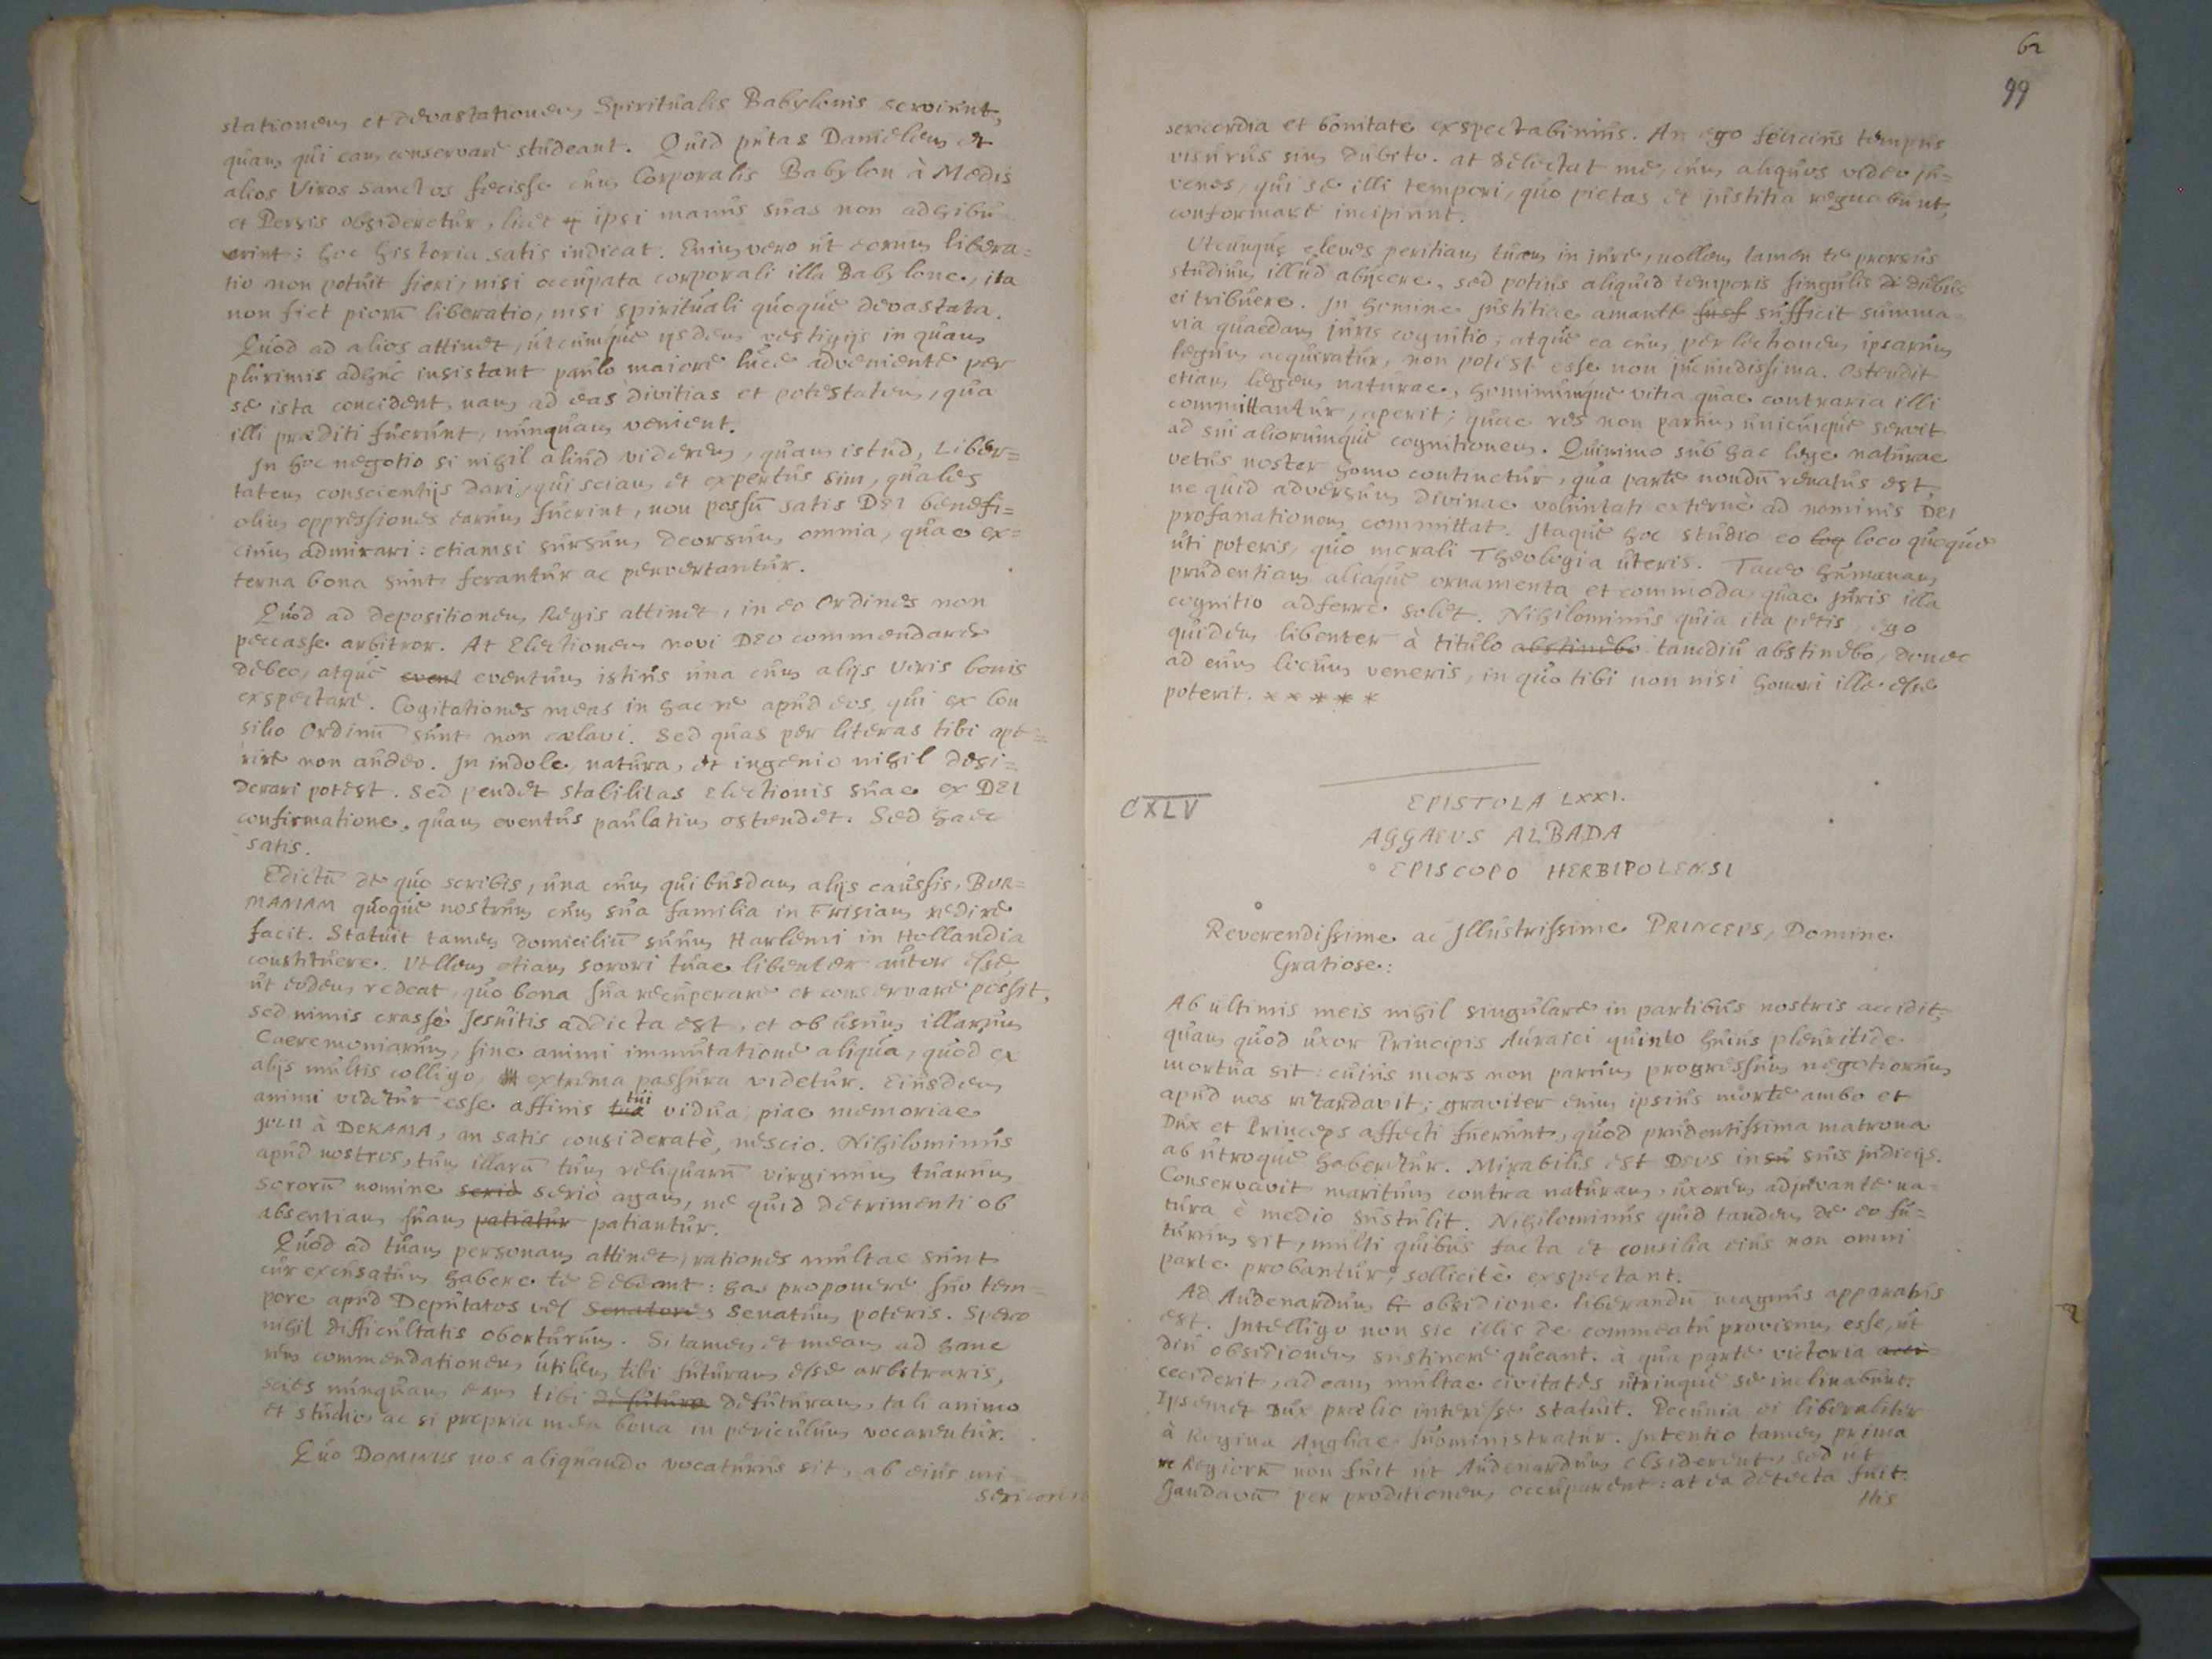 stationem et devastationem Spiritualis Babylonis serviunt,
quam qui eam conservare studeant. Quid putas Danielem et
alios Viros sanctos fecisse cum Corporalis Babylon à Medis
et Persis obsideretur, licet ipsi manus suas non adhibu=
erint; hoc historia satis indicat. Enimvero ut eorum libera=
tio non potuit fieri, nisi occupata corporali illa Babylone, ita
non fiet piorū liberatio, nisi spirituali quoque devastata.
Quod ad alios attinet, utcumque ysdem vestigijs in quam
plurimis adhuc insistant paulo maiore luce adveniente per
se ista concident, nam ad eas divitias et potestatem, qua
illi præditi fuerunt, nunquam venient.
In hoc negotio si nihil aliud viderem, quam istud, Liber=
tatem conscientijs dari, qui sciam et expertus sim, quales
olim oppressiones earum fuerint, non possū satis DEI benefi=
cium admirari: etiamsi sursum, deorsum, omnia, quae ex=
terna bona sunt ferantur ac pervertantur.
Quod ad depositionem Regis attinet, in eo Ordines non
peccasse arbitror. At Electionem novi DEO commendare
debeo, atque event eventum istius una cum alijs viris bonis
exspectare. Cogitationes meas in hac re apud eos, qui ex Con
silio Ordinū sunt non cælavi. Sed quas per literas tibi ape=
rire non audeo. In indole, natura, et ingenio nihil desi=
derari potest. Sed pendet stabilitas Electionis suae ex DEI
confirmatione, quam eventus paulatim ostendet. Sed haec
satis.
Edictū de quo scribis, una cum quibusdam alijs caussis, BUR=
MANIAM quoque nostrum cum sua familia in Frisiam redire
facit. Statuit tamen domiciliū suum Harlemi in Hollandia
constituere. Vellem etiam sorori tuae libenter autor esse,
ut eodem redeat, quo bona sua recuperare et conservare possit,
sed nimis crassè Jesuitis addicta est, et ob usum illarum
Caeremoniarum, sine animi immutatione aliqua, quod ex
alijs multis colligo, extrema passura videtur. Eiusdem
animi videtur esse affinis tua tui vidua, piae memoriae
à DEKAMA, an satis consideratè, nescio. Nihilominus
apud nostros, tum illarū tum reliquarū virginum tuarum
sororū nomine serio seriò agam, ne quid detrimenti ob
absentiam suam patiatur patiantur.
Quod ad tuam personam attinet, rationes multae sunt
cur excusatum habere te debeant: has proponere suo tem=
pore apud Deputatos vel Senatores Senatum poteris. Spero
nihil difficultatis oborturum. Si tamen et meam ad hanc
rem commendationem utilem tibi futuram esse arbitraris,
scies nunquam eam tibi defutura defuturam, tali animo
et studio, ac si propria mea bona in periculum vocarentur.
Quo DOMINUS nos aliquando vocaturus sit, ab eius mi=
sericor
62
99
sericordia et bonitate exspectabimus. An ego felicius tempus
visurus sim dubito. at delectat me, cum aliquos video ju=
venes, qui se illi tempori, quo pietas et justitia regnabunt,
conformare incipiunt.
Utcunque eleves peritiam tuam in jure, nollem tamen te prorsus
studium illud abijcere, sed potius aliquid temporis singulis di diebus
ei tribuere. In homine justitiae amante susf sufficit summa=
ria quaedam juris cognitio; atque ea cum per lectionem ipsarum
legum acquiratur, non potest esse non jucundissima. Ostendit
etiam legem naturae, hominumque vitia quae contraria illi
committantur, aperit; quae res non parum unicuique servit
ad sui aliorumque cognitionem. Quinimo sub hac lege naturae
vetus noster homo continetur, qua parte nondū renatus est,
ne quid adversum divinae voluntati externè ad nominis DEI
profanationem committat. Itaque hoc studio eo loq loco quoque
uti poteris, quo morali Theologia uteris. Taceo humanam
prudentiam aliaque ornamenta et commoda, quae juris illa
cognitio adferre solet. Nihilominus quia ita petis, ego
quidem libenter à titulo abstinebo tamdiu abstinebo, donec
ad eum locum veneris, in quo tibi non nisi honori ille esse
poterit. * * * * *
CXLV
EPISTOLA LXXI.
AGGAEUS ALBADA
EPISCOPO HERBIPOLENSI
Reverendissime ac Illustrissime PRINCEPS, Domine
Gratiose:
Ab ultimis meis nihil singulare in partibus nostris accidit,
quam quod uxor Principis Auraici quinto huius pleuritide
mortua sit: cuius mors non parum progressum negotiorum
apud nos retardavit; graviter enim ipsius morte ambo et
Dux et Princeps affecti fuerunt, quod prudentissima matrona
ab utroque haberetur. Mirabilis est DEUS in su suis judicijs.
Conservavit maritum contra naturam, uxorem adjuvante na=
tura è medio sustulit. Nihilominus quid tandem de eo fu=
turum sit, multi quibus facta et consilia eius non omni
parte probantur, sollicitè exspectant.
Ad Audenardum obsidione liberandū magnus apparatus
est. Intelligo non sic illis de commeatu provisum esse, ut
diu obsidionem sustinere queant. à qua parte victoria acci=
ceciderit, ad eam multae civitates utrinque se inclinabunt.
Ipsemet Dux prælio interesse statuit. Pecunia ei liberaliter
à Regina Angliae subministratur. Intentio tamen prima
Regiorū non fuit ut Audenardum obsiderent, sed ut
Gandavū per proditionem occuparent: at ea detecta fuit.
His